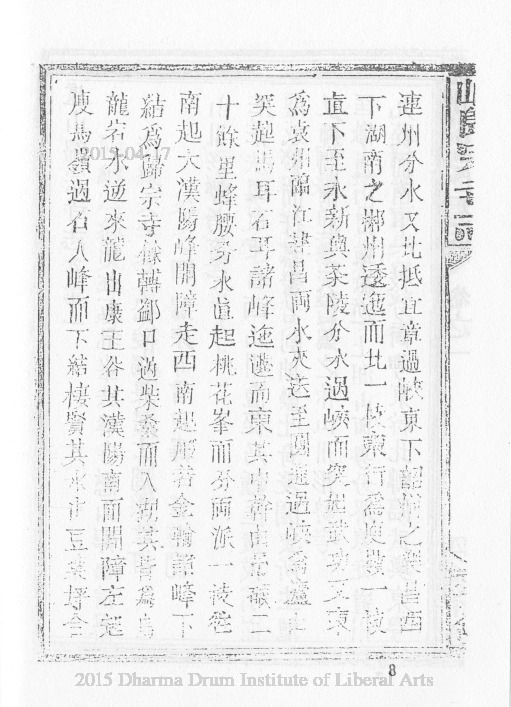 連州分水又北抵宜章過峽東下韶州之樂昌西
下湖南之郴州逶迤而北一枝東行為庾嶺一枝
直下至永新與茶陵分水過峽而突起武功又東
為袁州臨江建昌兩水夾送至圓通過峽為廬山
突起馬耳石耳諸峰迤邐而東其中幹由
十餘里蜂腰分水直起桃花峯而分兩派一枝從
南起大漢陽峰開障走西南起般若金輪諸峰下
結為歸宗寺餘轉鄱口過柴桑而入
龍岩水逆來龍由康王谷其漢陽南面開障左起
廋馬嶺過石人峰而下結棲賢其水由豆葉坪合
8
2015-04-17
2015 Dharma Drum Institute of Liberal Arts